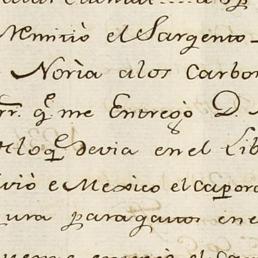 Remitió el Sargento
Noria a los Carbon
rr. q.e me Entregó D.
lo q.e devia en el Lib
vió e Mexico el Capora
ura para gastos en e